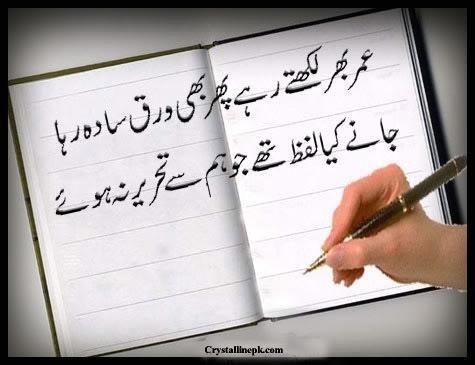 عمر بھر لکھتے رہے پھر بھی ورق سادہ رہا
جانے کیا لفظ تھے جو ہم سے تحریر نہ ہوئے
Crystallinepk.com